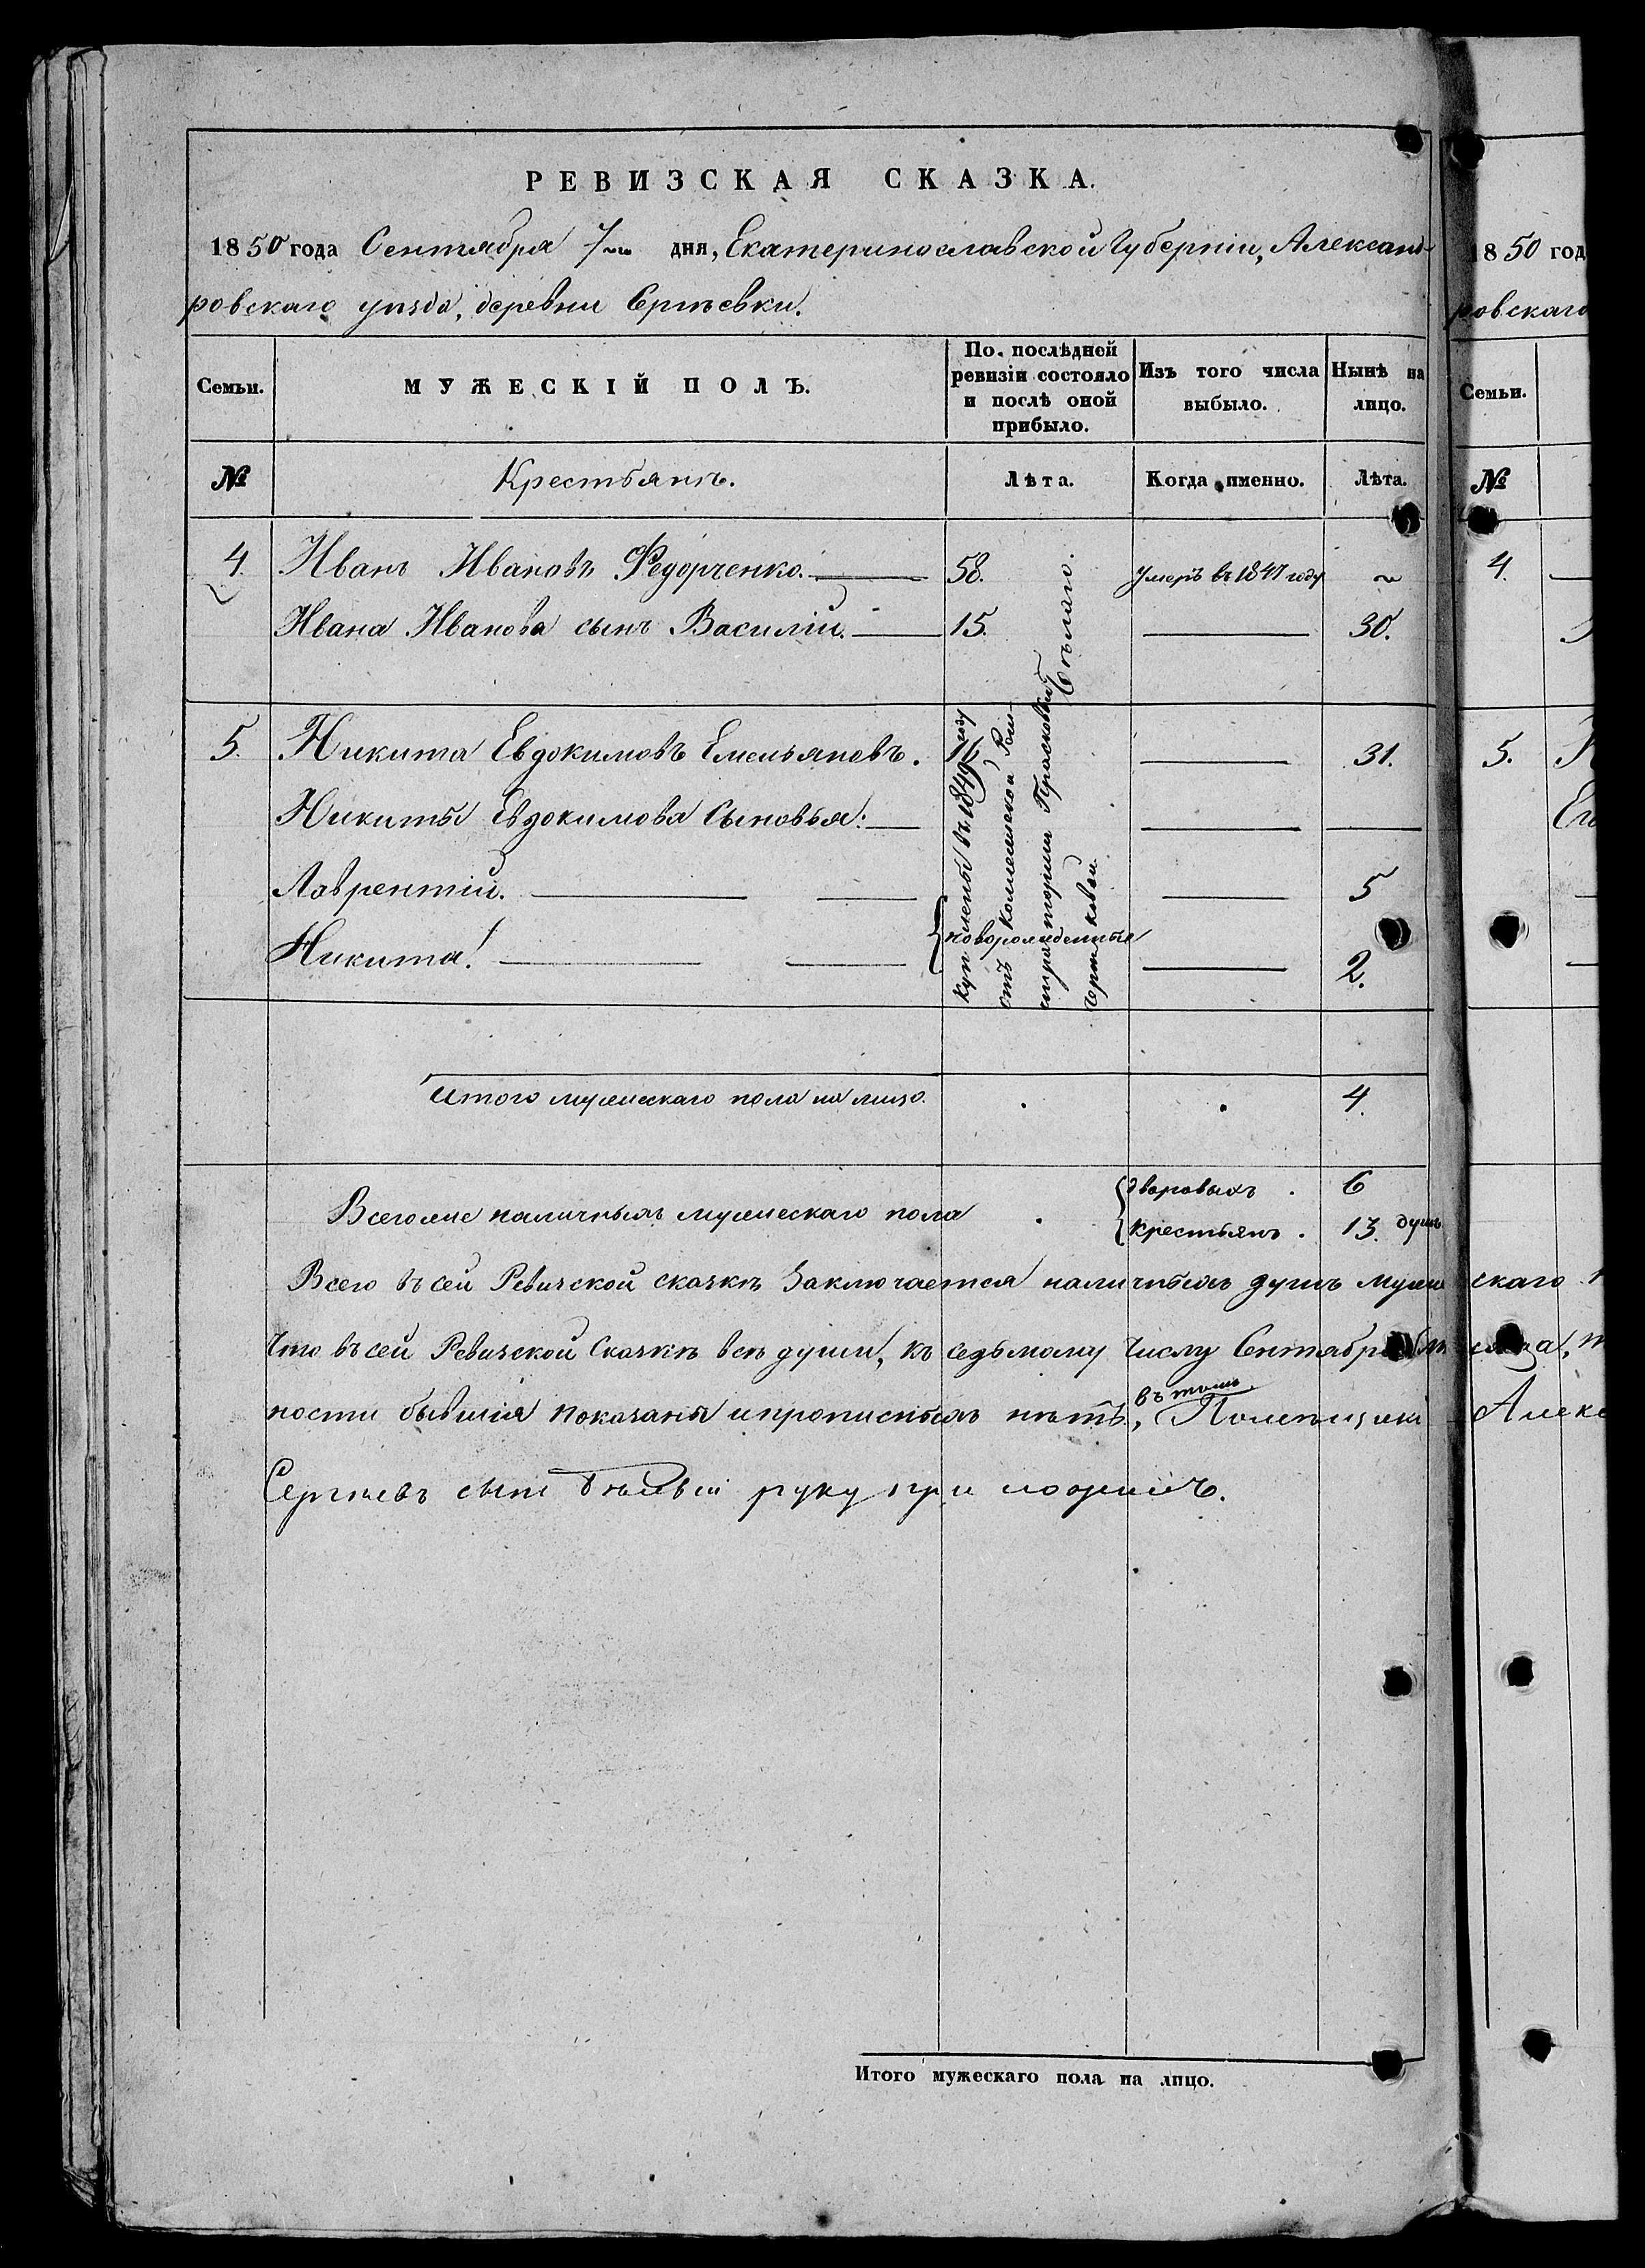 РЕВИЗСКАЯ СКАЗКА.
1850 года Сентября 7го дня, Екатеринославской Губерніи, Александ-
ровскаго уѣзда, деревни Сергѣевки.
Семьи.
МУЖЕСКІЙ ПОЛЪ.
По послѣдней ревизіи состояло и послѣ оной прибыло.
Изъ того числа выбыло.
Нынѣ на лицо.
№ Крестьянъ. Лѣта. Когда именно. Лѣта.
4. Иванъ Ивановъ Федорченко. 58. Умеръ въ 1847 году ~
Ивана Иванова сынъ Василій. 15. 30.
5. Никита Евдокимовъ Емельяновъ. 16 31.
Никиты Евдокимова Сыновья:
Лаврентій. 5
Никита. новорожденные 2.
Куплены въ 1849 году
отъ Коллежской Реги-
страторши Прасковьи
Чертковой.
Итого мужескаго пола на лицо. 4.
Всего же наличныхъ мужескаго пола дворовыхъ . 6
крестьянъ . 13. душъ
Всего въ сей Ревизской сказкѣ заключается наличныхъ душъ муже скаго
Что въ сей Ревизской Сказкѣ всѣ души, къ седьмому Числу Сентября
ности бывшія показаны и прописныхъ нѣтъ, въ томъ Помѣщикъ Алекс
Сергѣевъ сынъ руку приложилъ.
Итого мужескаго пола на лицо.
1850 год
ровскаго
Семьи.
№
4.
5.